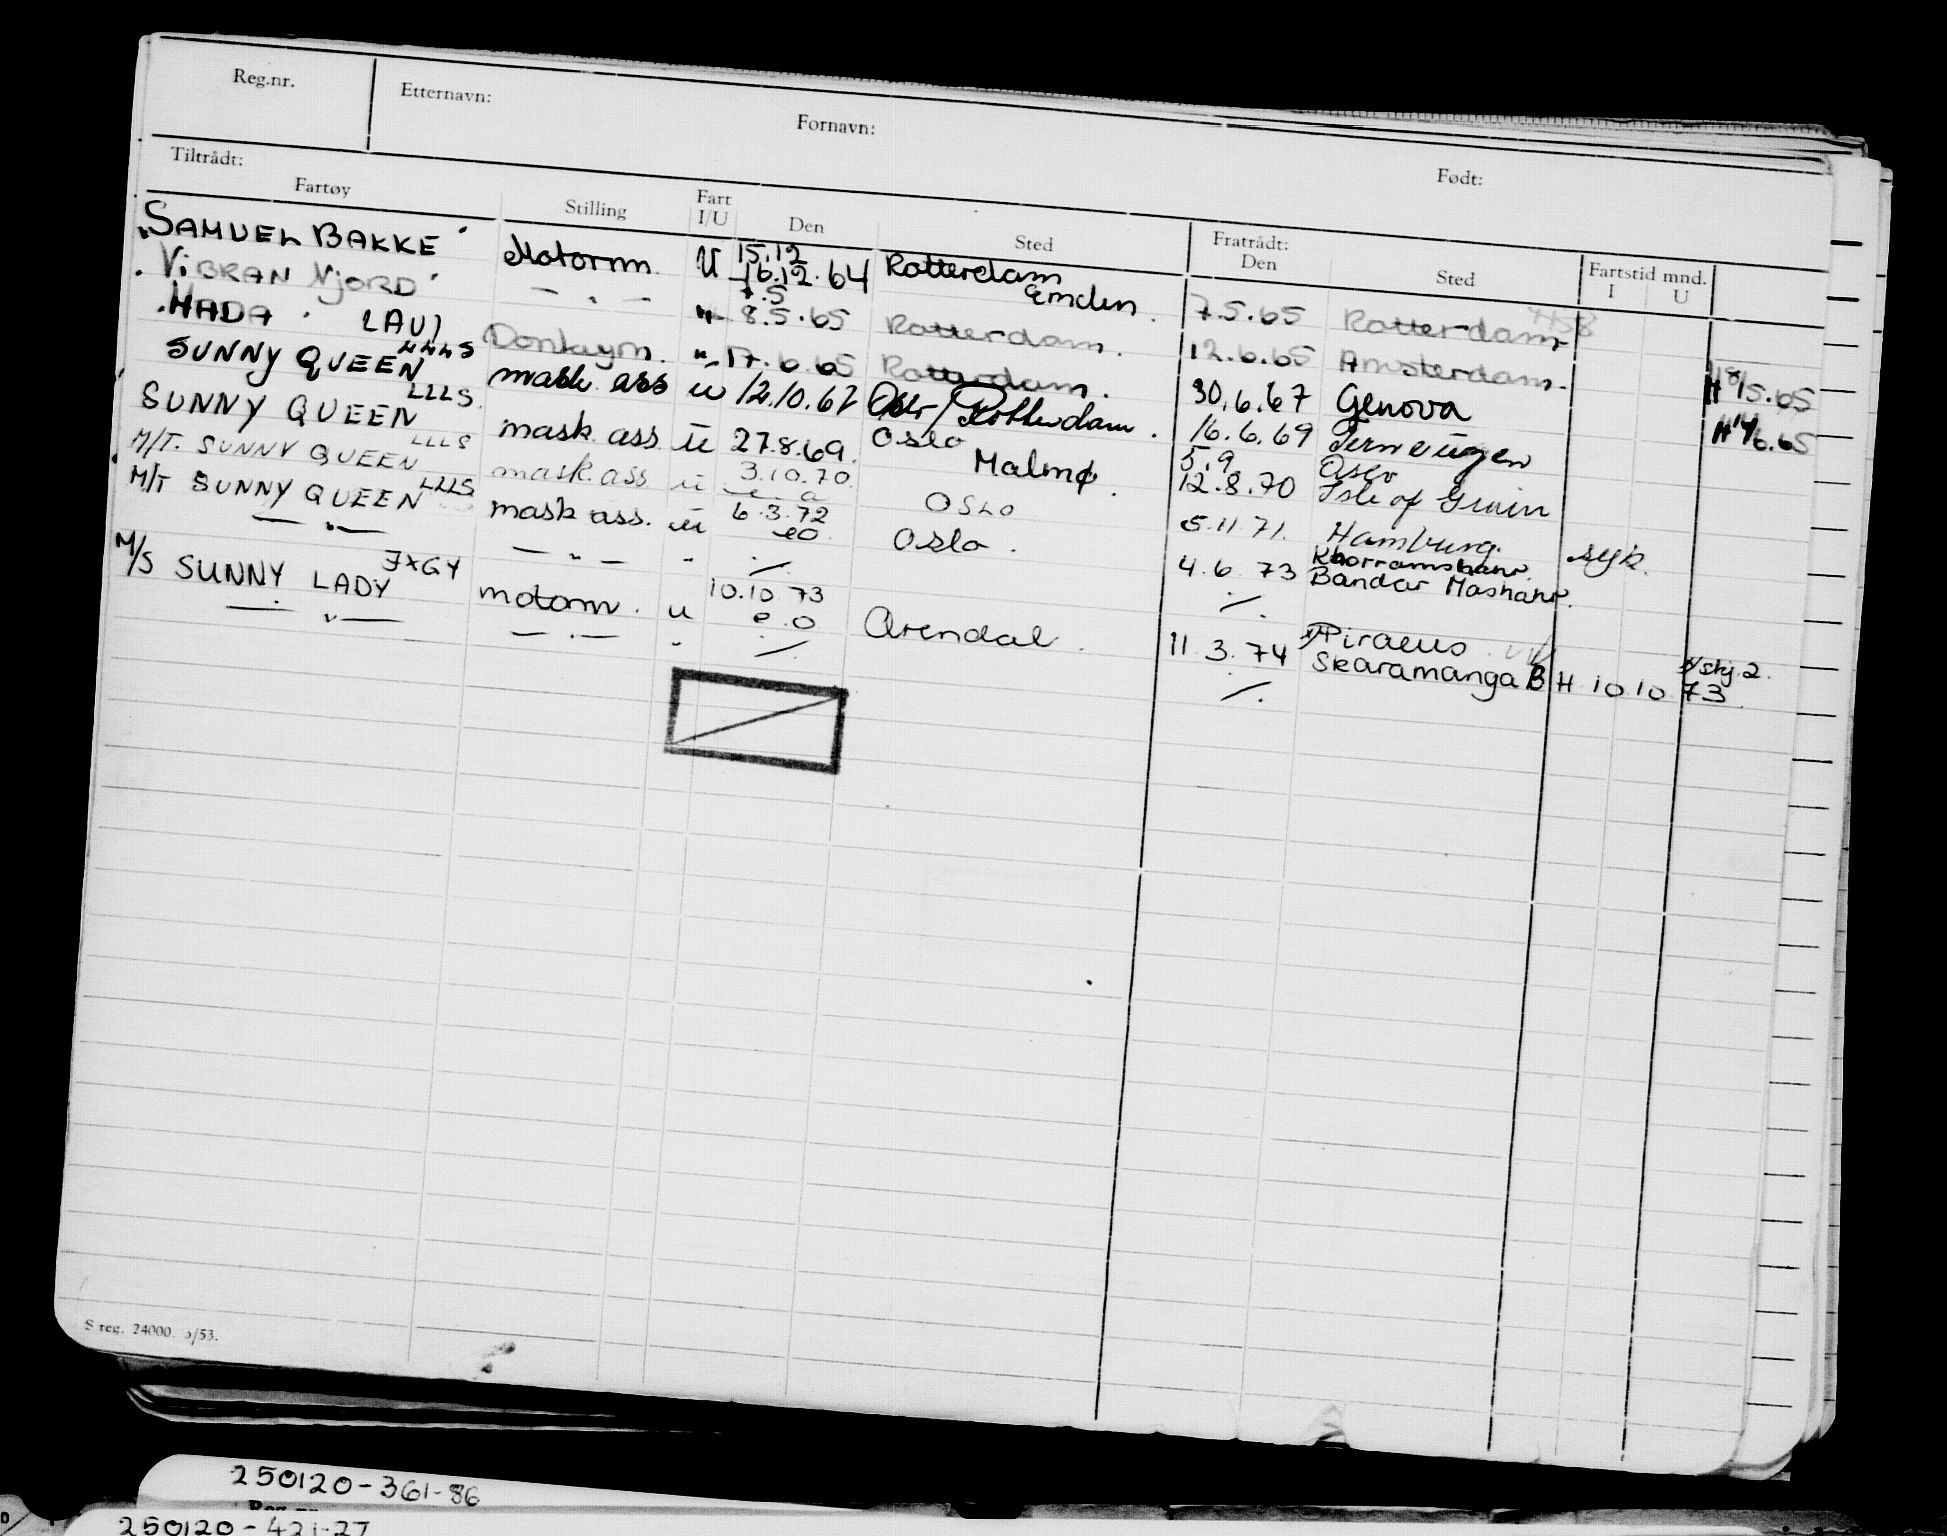 Reg.nr. Etternavn: Fornavn: Født:
Tiltrådt: Fratrådt: Fartstid mnd.
Fartøy Stilling Fart I/U Den Sted Den Sted I U
"SAMUEL BAKKE" Motorm. U 15.12 16.12.64 Rotterdam Emden. 7.5.65 Rotterdam
"VIBRAN Njord" — " — " 7.5 8.5.65 Rotterdam. 12.6.65 Amsterdam. H 18/5.65
"HADA" LAUJ Donkeym. " 17.6.65 Rotterdam. 30.6.67 Genova
SUNNY QUEEN LLLS mask ass ü 12.10.67 Oslo/Rotterdam. 16.6.69
SUNNY QUEEN LLLS. mask ass ü 27.8.69. Oslo Malmø. 5.9 12.8.70 Oslo Isle of Grain
M/T. SUNNY QUEEN LLLS mask. ass ü 3.10.70 OSLO 5.11 71. Hamburg. syk.
M/T SUNNY QUEEN LLLS mask ass. ü 6.3.72 Oslo. 4.6 73 Khorramshahr Bandar Mashahr.
— " — — " — " ./. ./.
M/S SUNNY LADY JXGY motorm. u 10.10 73 Arendal. 11 3. 74 Piraeus Skaramanga B H 10 10 73
— " — — . — " ./. ./.
S reg. 24000. 5/53.
250120-361-86
Reg.nr.
250120-421-27